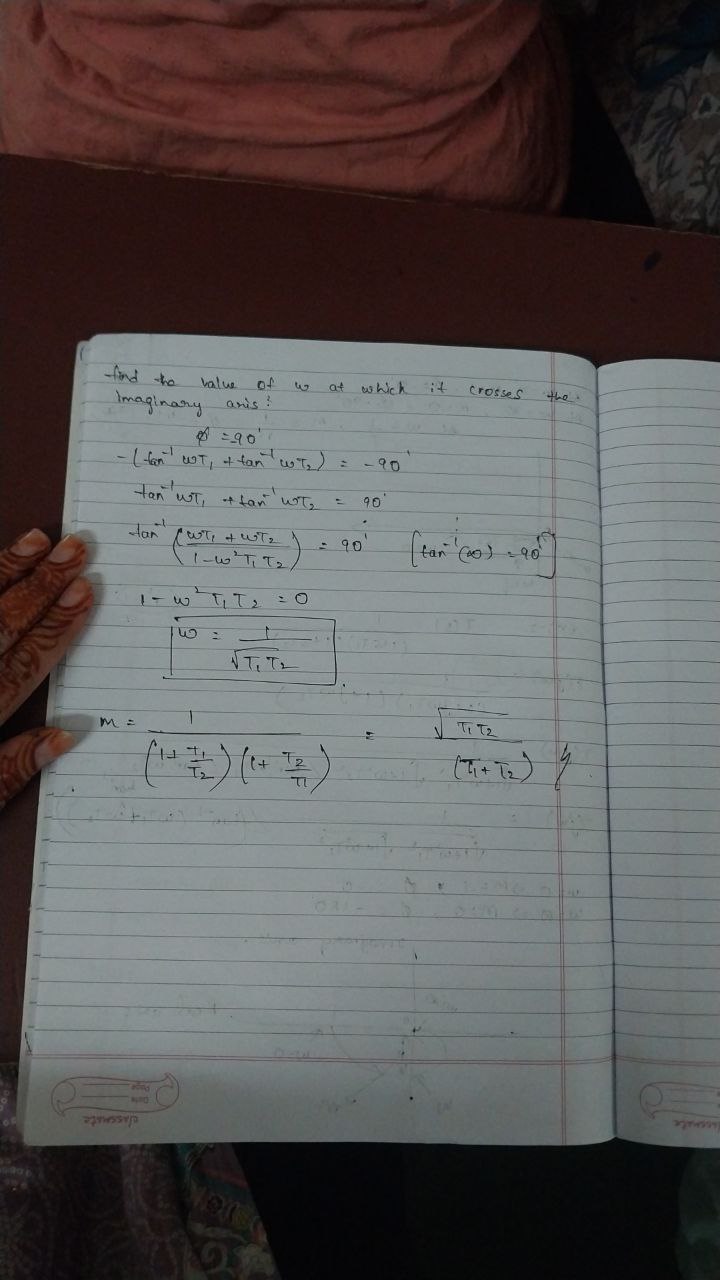 find the value of w at which it crosses the
imaginary axis:
ϕ = -90°
-(tan⁻¹ wT₁ + tan⁻¹ wT₂) = -90°
tan⁻¹ wT₁ + tan⁻¹ wT₂ = 90°
tan⁻¹ ((wT₁ + wT₂)/(1 - w²T₁T₂)) = 90° [tan⁻¹(∞) = 90°]
1 - w²T₁T₂ = 0
w = 1/√(T₁T₂)
m = 1/((1 + T₁/T₂)(1 + T₂/T₁)) = √(T₁T₂)/(T₁ + T₂)
classmate
Date
Page
classmate